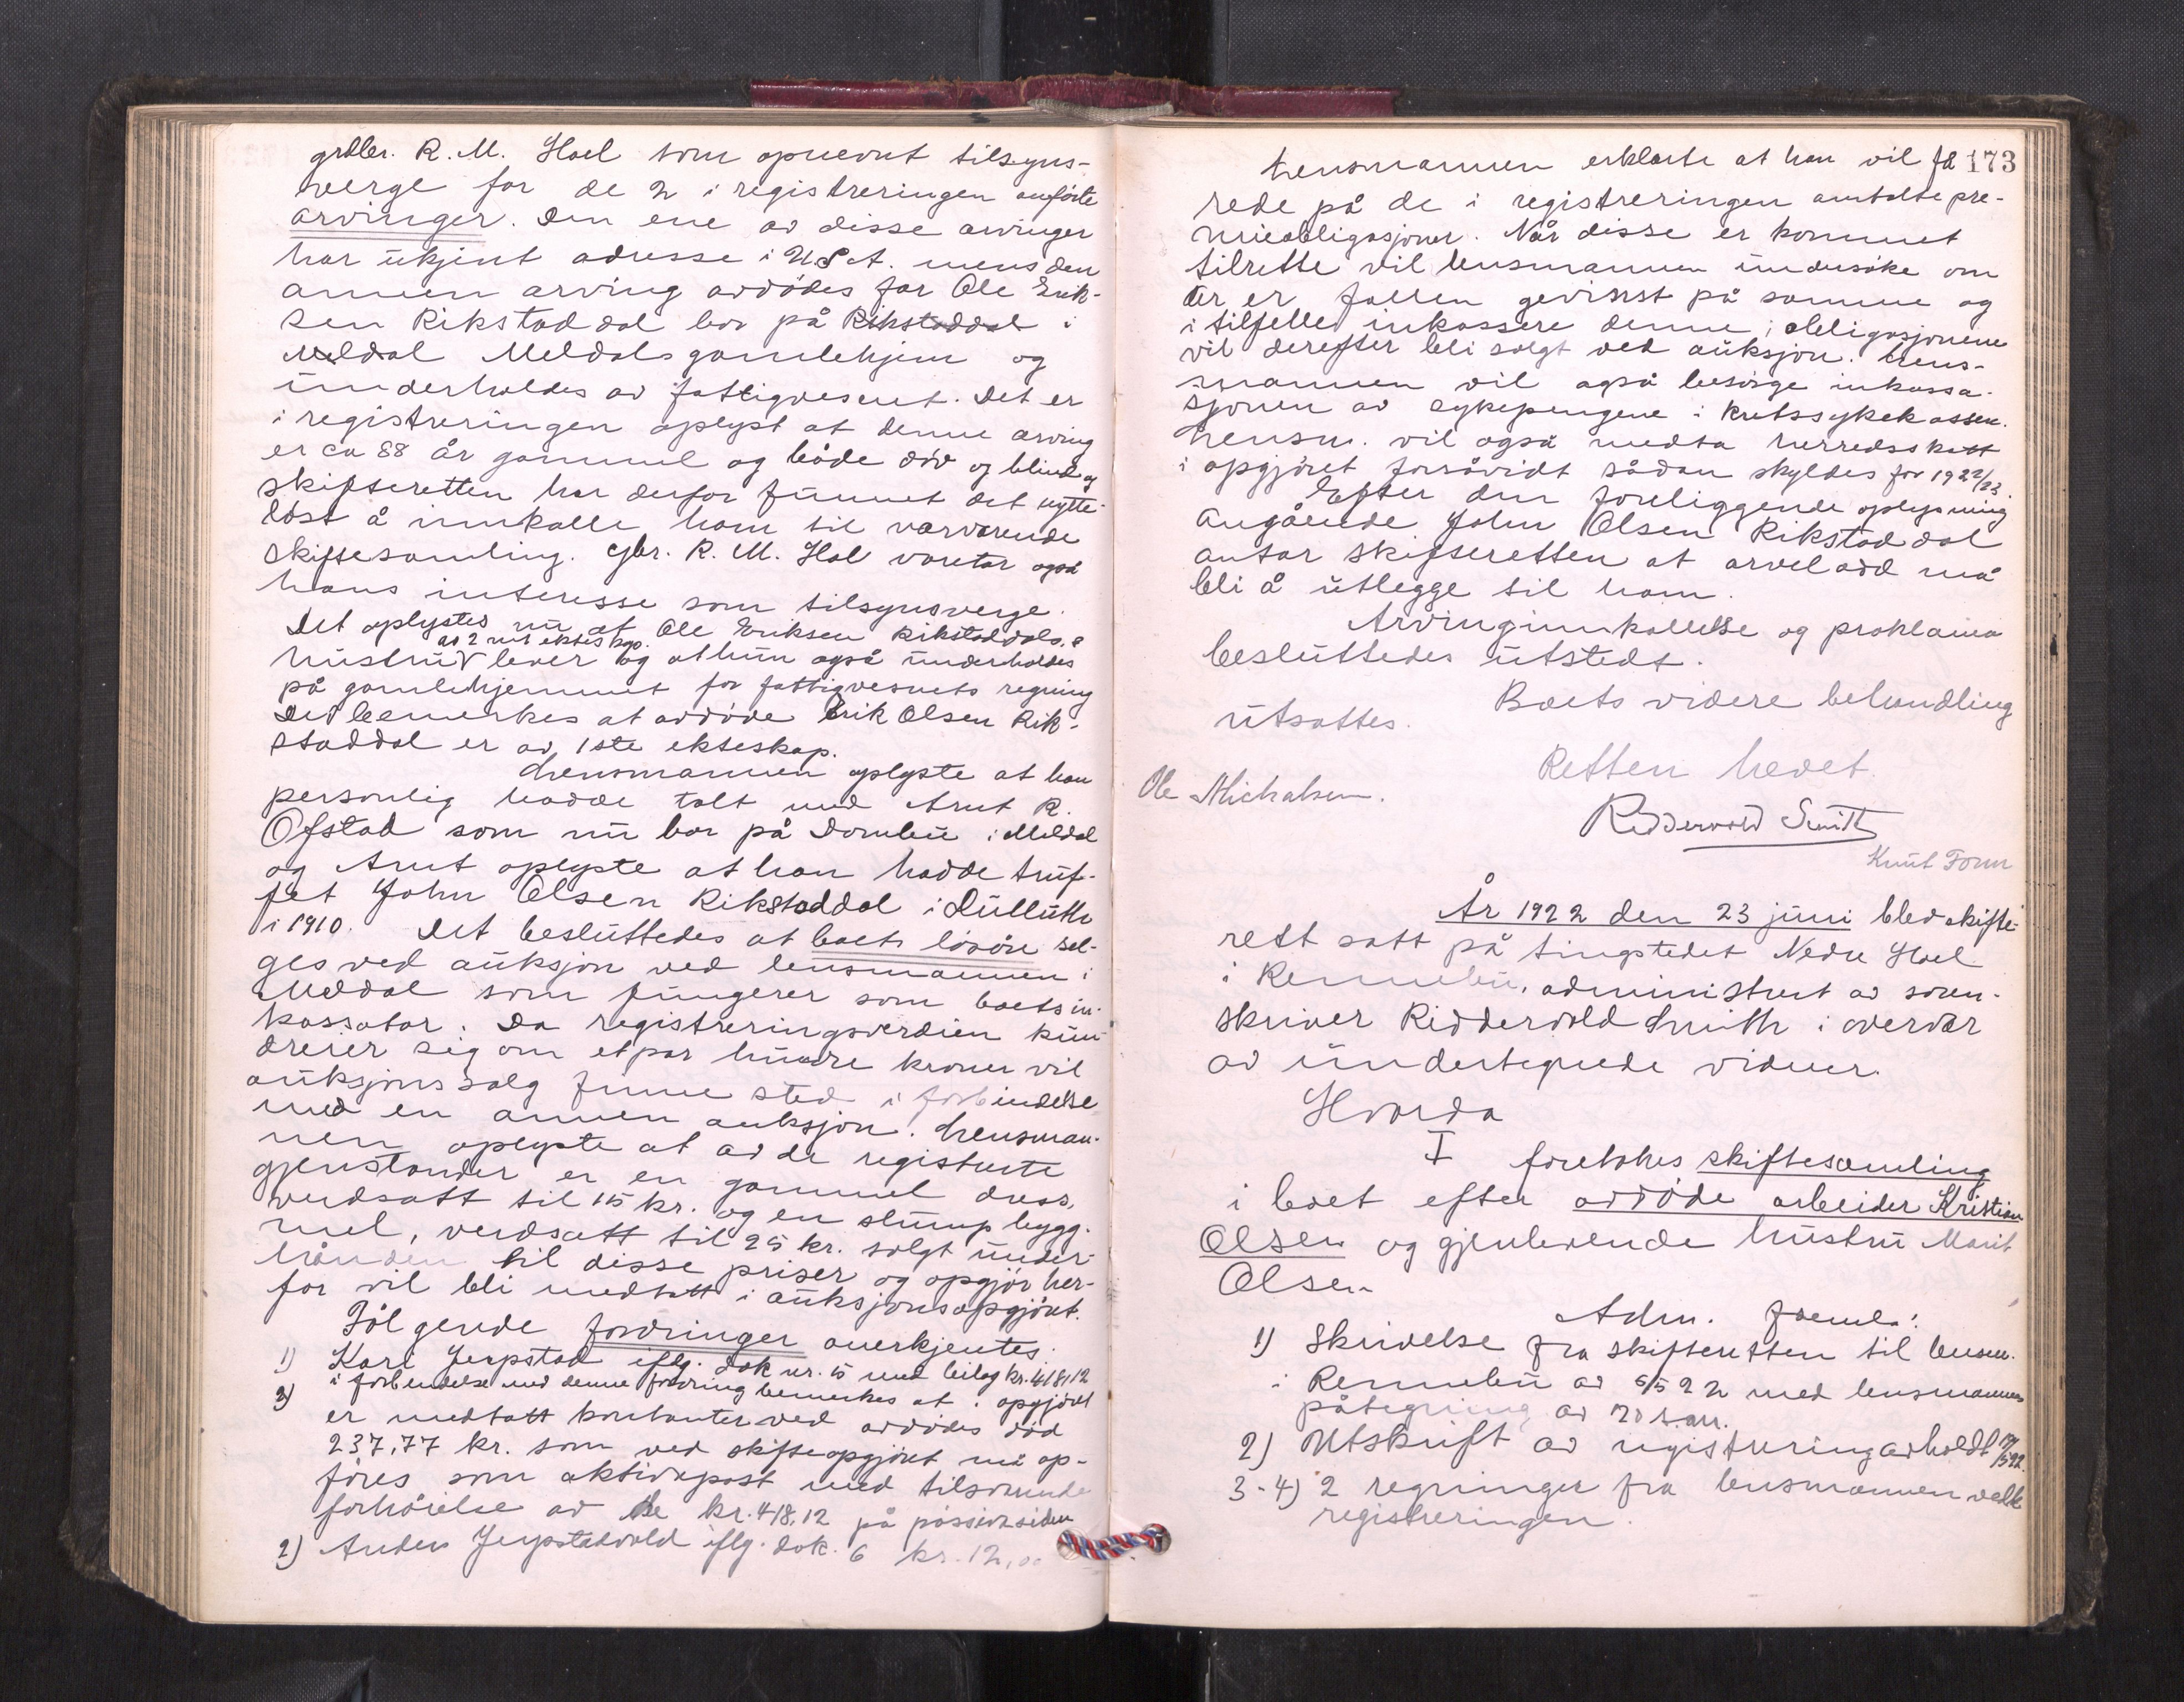 grdbr. R. M. Hoel som opnevnt tilsyns-
verge for de 2 i registreringen anförte
arvinger. Den ene av disse arvinger
har ukjent adresse i U.S.A. mens den
annen arving avdödes far Ole Erik-
sen Rikstaddal bor på Rikstaddal i
Meldal Meldals gamlehjem og
underholdes av fattigvesenet. Det er
i registreringen oplyst at denne arving
er ca 88 år gammel og både döv og blind og
skifteretten har derfor funnet det nytte-
löst å innkalle ham til varværende
skiftesamling. Gbr. R. M. Hol varetar også
hans interesse som tilsynsverge.
Det oplystes nu at Ole Eriksen Rikstaddals
av 2net ekteskap.
hustru lever og at hun også underholdes
på gamlehjemmet for fattigvesnets regning
Det bemerkes at avdöde Erik Olsen Rik-
staddal er av 1ste ekteskap.
Lensmannen oplyste at han
personlig hadde talt med Arnt R.
Öfstad som nu bor på Dombu i Meldal
og Arnt oplyste at han hadde truf-
fet John Olsen Rikstaddal i Dulluth
i 1910. Det besluttedes at boets lösöre sel-
ges ved auksjon ved lensmannen i
Meldal som fungerer som boets in-
kassator. Da registreringsverdien kun
dreier sig om et par hundre kroner vil
auksjonssalg finne sted i forbindelse
med en annen auksjon. Lensman-
nen oplyste at av de registrerte
gjenstander er en gammel dress,
verdsatt til 15 kr. og en slump bygg-
mel, verdsatt til 25 kr. solgt under-
hånden til disse priser og opgjör her-
for vil bli medtatt i auksjonsopgjöret.
Fölgende fordringer anerkjentes:
1) Kari Jerpstad iflg. dok nr. 5 med bilag kr. 418,12
i forbindelse med denne fordring bemerkes at i opgjöret
er medtatt kontanter ved avdödes död
237,77 kr. som ved skifteopgjöret må op-
föres som aktivapost med tilsvarende
forhöielse av de kr. 418,12 på passivasiden
2) Anders Jerpstadvold iflg. dok. 6 kr. 12,00
173
Lensmannen erklærte at han vil få
rede på de i registreringen omtalte pre-
mieobligasjoner. Når disse er kommet
tilrette vil lensmannen undersöke om
der er fallen gevinst på samme og
i tilfelle inkassere denne; obligasjonene
vil derefter bli solgt ved auksjon. Lens-
mannen vil også besörge inkassa-
sjonen av sykepengene i Kretssykekassen.
Lensm. vil også medta herredsskatt
i opgjöret forsåvidt sådan skyldes for 1922/23.
Efter den foreliggende oplysning
angående John Olsen Rikstaddal
antar skifteretten at arvelodd må
bli å utlegge til ham.
Arvinginnkallelse og proklama
besluttedes utstedt.
Boets videre behandling
utsattes.
Retten hevet.
Ole Michalsen.
Riddervold Smith
Knut Form
År 1922 den 23 juni blev skifte-
rett satt på tingstedet Nedre Hoel
i Rennebu, administrert av soren-
skriver Riddervold Smith i overvær
av undertegnede vidner.
Hvorda
I foretokes skiftesamling
i boet efter avdöde arbeider Kristian
Olsen og gjenlevende hustru Marit
Olsen
Adm. freml.:
1) Skrivelse fra skifteretten til lensm.
i Rennebu av 6/5 22 med lensmannens
påtegning av 20 s. m.
2) Utskrift av registrering avholdt 19/5 22.
3-4) 2 regninger fra lensmannen vedk
registreringen.